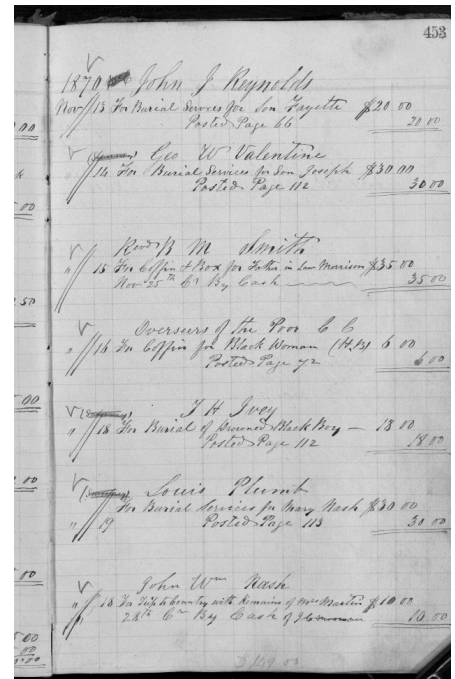 453
1870 John J Reynolds
Nov 13 For Burial Services for Son Fayette $20.00
Posted Page 66 20.00
Geo W Valentine
" 14 For Burial Services for Son Joseph $30.00
Posted Page 112 30.00
Revd B M Smith
" 15 For Coffin & Box for Father in Law Morrison $35.00
Nov 25th Cr By Cash 35.00
Overseers of the Poor C C
" 16 For Coffin for Black Woman (H.B) 6.00
Posted Page 72 6.00
T H Ivey
" 18 For Burial of Drowned Black Boy — 18.00
Posted Page 112 18.00
Louis Plumb
For Burial Services for Mary Nash $30.00
" 19 Posted Page 113 30.00
John Wm Nash
" 18 For Trip to Country with Remains of Mrs Martin $10.00
28th Cr By Cash of 10.00
$149.00